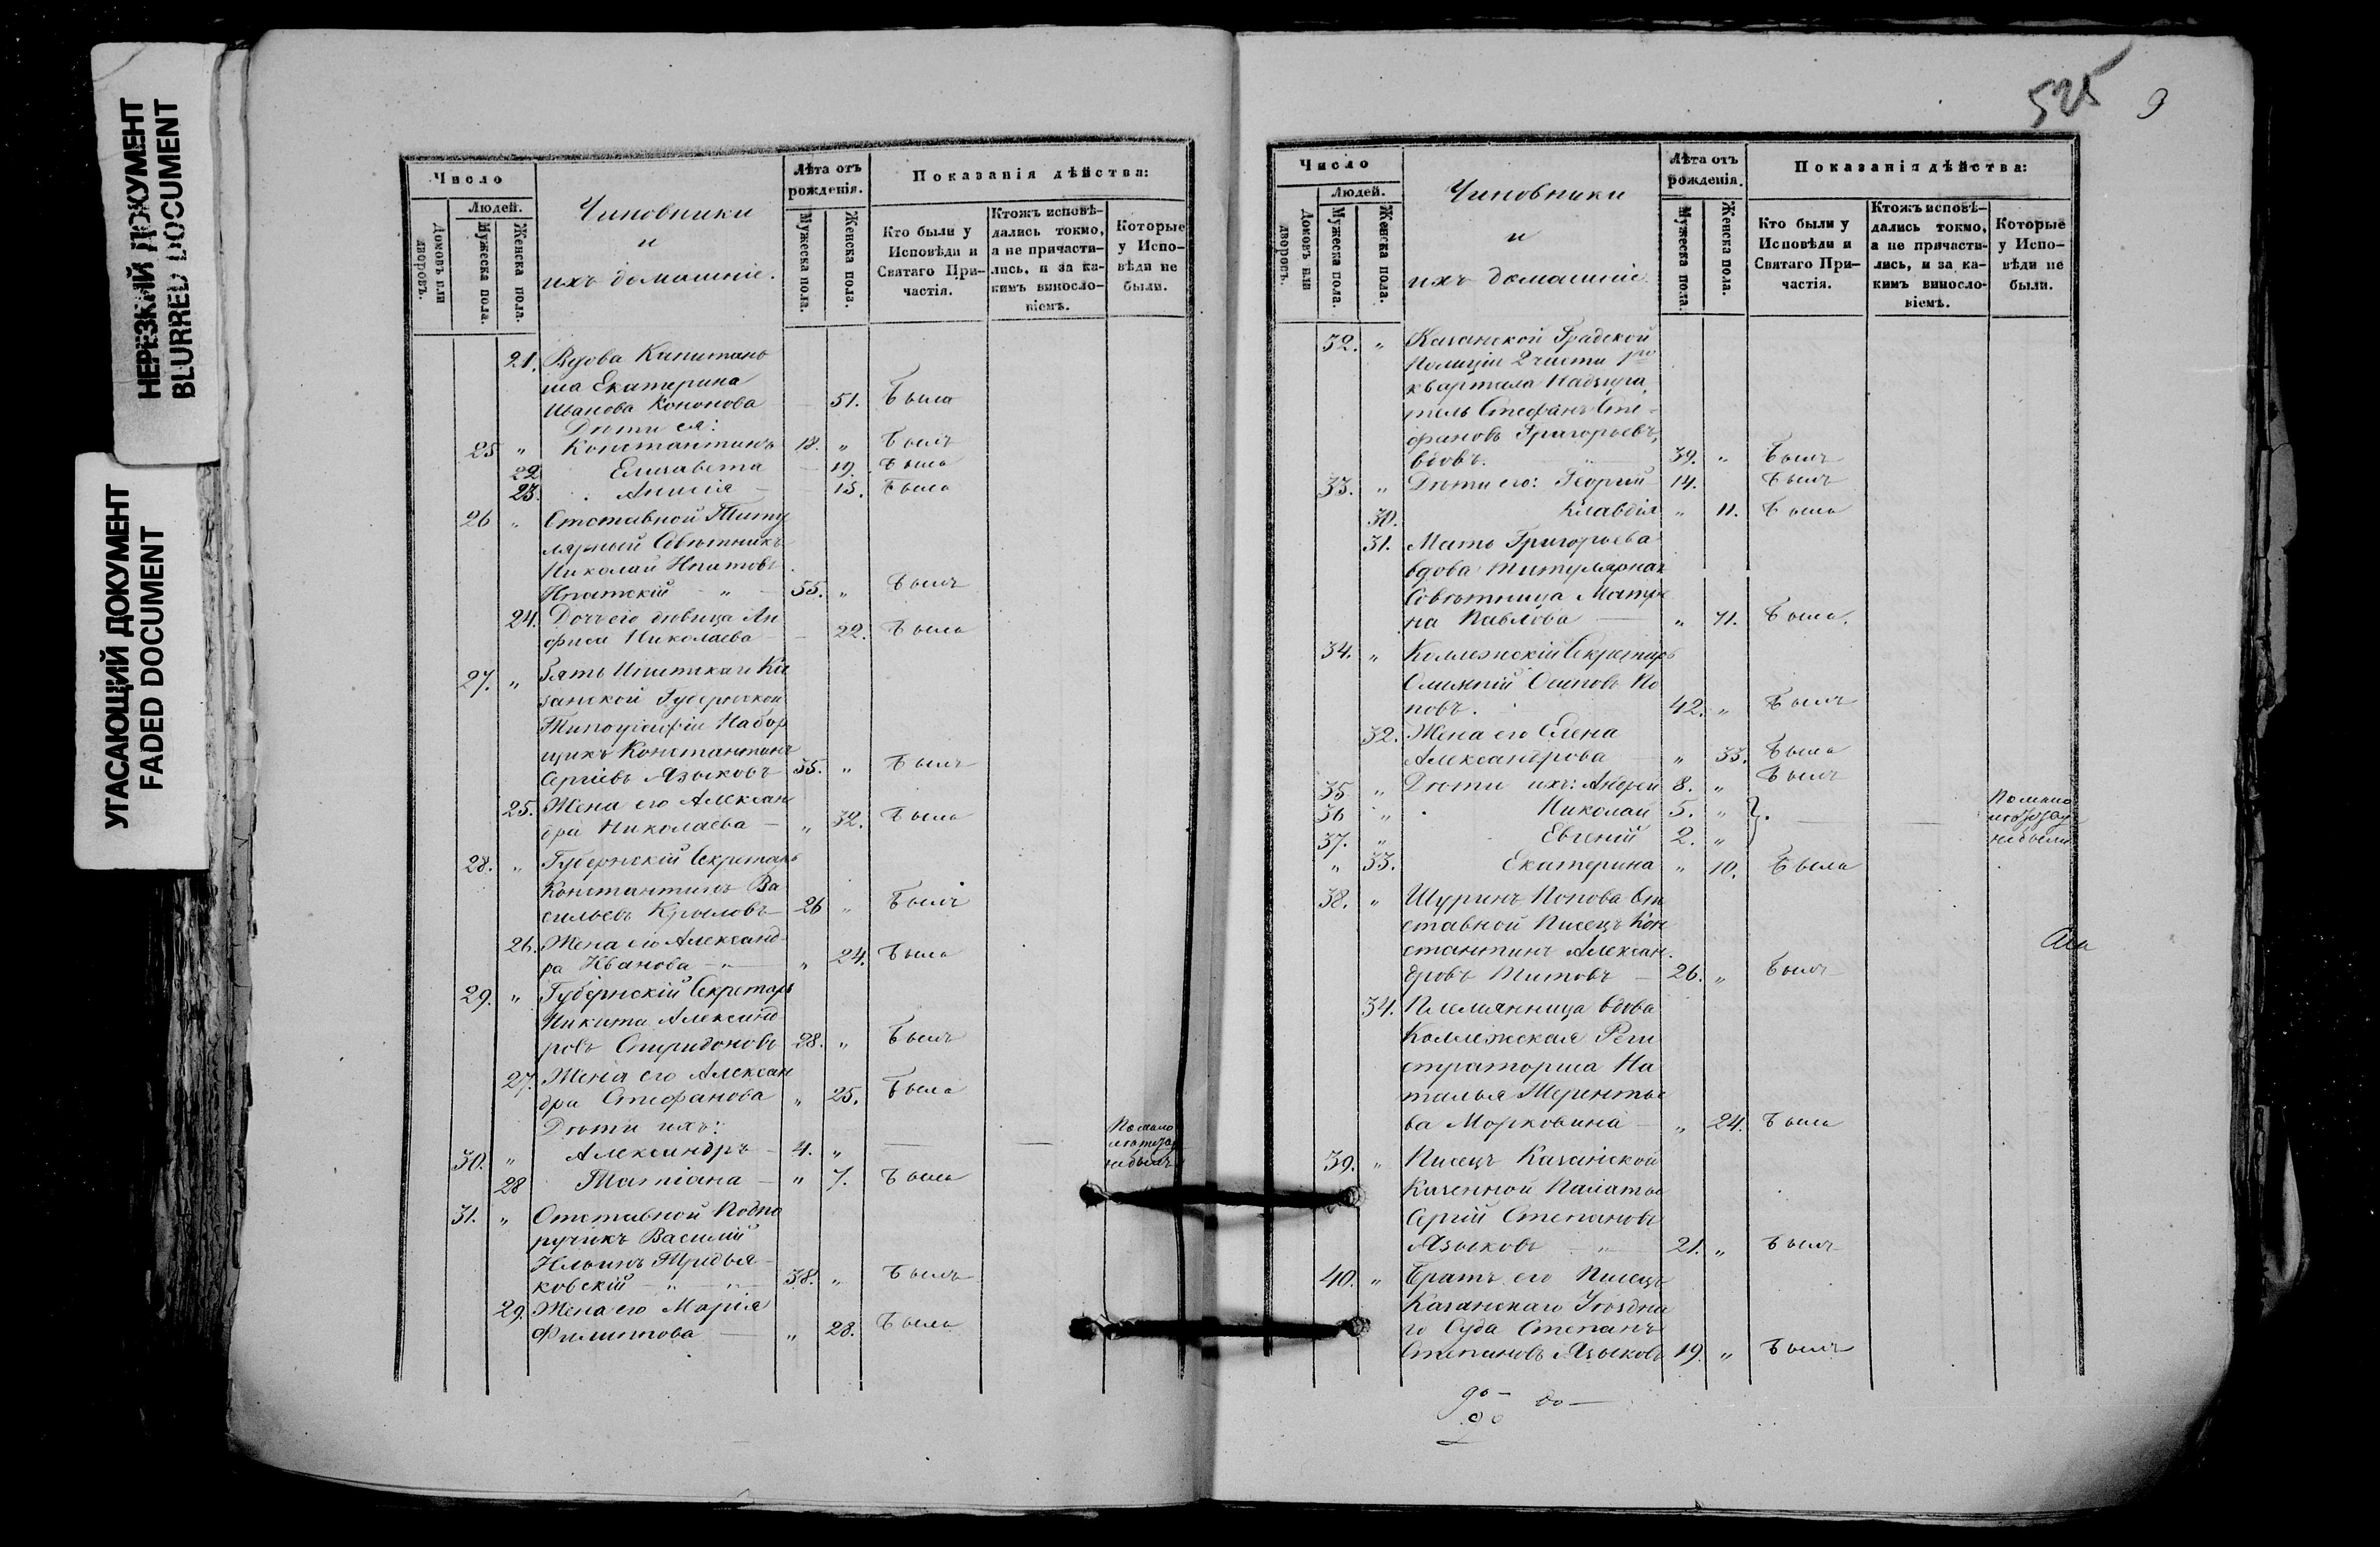 НЕРЕЗКИЙ ДОКУМЕНТ
BLURRED DOCUMENT
УГАСАЮЩИЙ ДОКУМЕНТ
FADED DOCUMENT
Число
Людей.
Домовъ или дворовъ.
Мужеска пола.
Женска пола.
Чиновники
и
ихъ домашніе.
Лѣта отъ рожденія.
Мужеска пола.
Женска пола.
Показанія дѣйства:
Кто были у Исповѣди и Святаго Причастія.
Ктожъ исповѣдались токмо, а не причастились, и за какимъ винословіемъ.
Которые у Исповѣди не были.
21. Вдова Капитан
ша Екатерина
Иванова Кононова 51. Была
Дѣти ея:
25 " Константинъ 18. " Былъ
22 Елизавета 19. Была
23. 15. Была
26 " Отставной Титу
лярный Совѣтникъ
Николай Ипатовъ
Ипатскій " 55. " Былъ
24. Дочь его дѣвица Ан
фиса Николаева 22. Была
27. " Зять Ипатскаго Ка
занской Губернской
Типографіи Набор
щикъ Константинъ
Сергіевъ Языковъ 35. " Былъ
25. Жена его Алексан
дра Николаева " 32. Была
28. " Губернскій Секретарь
Константинъ Ва
сильевъ Крыловъ 26 " Былъ
26. Жена его Александ
ра Иванова " " 24. Была
29. " Губернскій Секретарь
Никита Александ
ровъ Спиридоновъ 28. " Былъ
27. Жена его Алексан
дра Стефанова " 25. Была
Дѣти ихъ:
30. " Александръ 4. " По мало
лѣтству
не былъ
28 Татіана " 7. Была
31. " Отставной Подпо
ручикъ Василій
Ильинъ Тридья
ковскій " " 38. " Былъ
29. Жена его Марія
Филиппова " 28. Была
525 9
Число
Людей.
Домовъ или дворовъ.
Мужеска пола.
Женска пола.
Чиновники
и
ихъ домашніе.
Лѣта отъ рожденія.
Мужеска пола.
Женска пола.
Показанія дѣйства:
Кто были у Исповѣди и Святаго Причастія.
Ктожъ исповѣдались токмо, а не причастились, и за какимъ винословіемъ.
Которые у Исповѣди не были.
32. " Казанской Градской
Полиціи 2 части 1го
квартала Надзира
тель Стефанъ Сте
фановъ Григорьевъ,
вдовъ. 39. " Былъ
33. " Дѣти его: Георгій 14. Былъ
30. Клавдія " 11. Была
31. Мать Григорьева
вдова Титулярная
Совѣтница Матре
на Павлова " 71. Была.
34. " Коллежскій Секретарь
Олимпій Осиповъ По
повъ. 42. " Былъ
32. Жена его Елена
Александрова " 33. Была
35 " Дѣти ихъ: Андрей 8. " Былъ
36 " Николай 5. " По мало
лѣтству
37. " Евгеній 2. " не были
" 33. Екатерина " 10. Была
38. " Шуринъ Попова От
ставной Писецъ Кон
стантинъ Алексан
дровъ Титовъ 26. " Былъ
34. Племянница вдова
Коллежская Реги
страторша На
талья Терентье
ва Морковина " 24. Была
39. " Писецъ Казанской
Казенной Палаты
Сергій Степановъ
Языковъ " 21. " Былъ
40. " Братъ его Писецъ
Казанскаго Уѣздна
го Суда Степанъ
Степановъ Языковъ 19. " Былъ